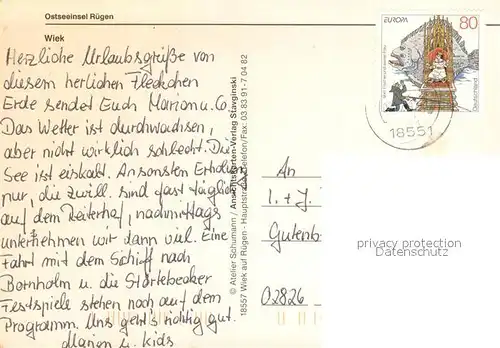 Ostseeinsel Rügen
Wiek
Herzliche Urlaubsgrüße von
diesem herlichen Fleckchen
Erde sendet Euch Marion u. Co.
Das Wetter ist durchwachsen,
aber nicht wirklich schlecht. Die
See ist eiskalt. Ansonsten Erholung
pur, die Zwill. sind fast täglich
auf dem Reiterhof, nachmittags
unternehmen wir dann viel. Eine
Fahrt mit dem Schiff nach
Bornholm u. die Störtebecker
Festspiele stehen noch auf dem
Programm. Uns geht's richtig gut.
Marion u. Kids
© Atelier Schumann / Ansichtskarten-Verlag Stavginski
18557 Wiek auf Rügen - Hauptstr. Telefon/Fax: 03 83 91-7 04 82
EUROPA
80
Deutschland
18551
An
I. + J.
Gutenb
02826
privacy protection
Datenschutz